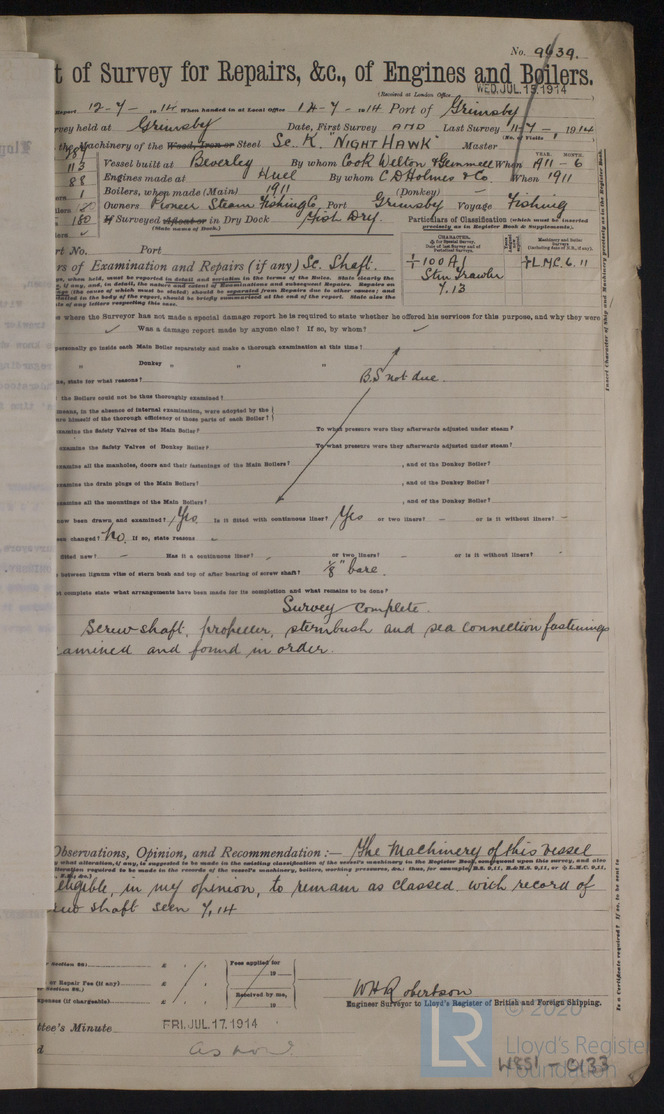 No. 9939.
t of Survey for Repairs, &c., of Engines and Boilers.
(Received at London Office WED. JUL. 15. 1914
Report 12-7-1914 When handed in at Local Office 14-7-1914 Port of Grimsby
vey held at Grimsby Date, First Survey AND Last Survey 11-7-, 1914
(No. of Visits 1
the Machinery of the Wood, Iron or Steel Sc. K. "NIGHT HAWK" Master
287
113 Vessel built at Beverley By whom Cook Welton & Gemmell When 1911 - 6
YEAR. MONTH.
88 Engines made at Hull By whom C D Holmes & Co. When 1911
1 Boilers, when made (Main) 1911 (Donkey) -
Owners Pioneer Steam Fishing Co. Port Grimsby Voyage Fishing
180 If Surveyed Afloat or in Dry Dock Fish Dry.
(State name of Dock.)
Particulars of Classification (which must be inserted
precisely as in Register Book & Supplements).
rt No. Port
CHARACTER.
Machinery and Boiler
Surveys
+ 100 A1
Stm Trawler
7.13
+ L.M.C. 6.11
rs of Examination and Repairs (if any) Sc. Shaft.
e where the Surveyor has not made a special damage report he is required to state whether he offered his services for this purpose, and why they were
Was a damage report made by anyone else? If so, by whom?
personally go inside each Main Boiler separately and make a thorough examination at this time?
" Donkey " " "
e, state for what reasons? B.S not due.
the Boilers could not be thus thoroughly examined?
means, in the absence of internal examination, were adopted by the
ure himself of the thorough efficiency of those parts of each Boiler?
examine the Safety Valves of the Main Boiler? To what pressure were they afterwards adjusted under steam?
examine the Safety Valves of Donkey Boiler? To what pressure were they afterwards adjusted under steam?
examine all the manholes, doors and their fastenings of the Main Boilers? , and of the Donkey Boiler?
examine the drain plugs of the Main Boilers? , and of the Donkey Boiler?
examine all the mountings of the Main Boilers? , and of the Donkey Boiler?
now been drawn and examined? Yes Is it fitted with continuous liner? Yes or two liners? - or is it without liners? -
een changed? No. If so, state reasons
fitted new? - Has it a continuous liner? or two liners? - or is it without liners?
e between lignum vitæ of stern bush and top of after bearing of screw shaft? 1/8" bare.
t complete state what arrangements have been made for its completion and what remains to be done?
Survey complete.
Screw shaft, propeller, sternbush and sea connection fastenings
amined and found in order.
Observations, Opinion, and Recommendation:— The Machinery of this vessel
eligible, in my opinion, to remain as classed with record of
ew shaft seen 7.14
Fees applied for
19
or Repair Fee (if any) £
penses (if chargeable) £
Received by me,
19
W H Robertson
Engineer Surveyor to Lloyd's Register of British and Foreign Shipping.
ttee's Minute FRI. JUL. 17. 1914
d as now
© 2020
LR
Lloyd's Register
Foundation
W851 - 0133